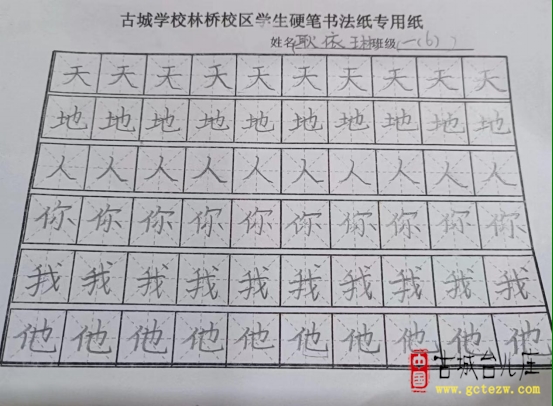 古城学校林桥校区学生硬笔书法纸专用纸
姓名耿依琳班级(一(6) )
天天天天天天天天天天
地地地地地地地地地地
人人人人人人人人人人
你你你你你你你你你你
我我我我我我我我我我
他他他他他他他他他他
中国 古城台儿庄
www.gctezw.com